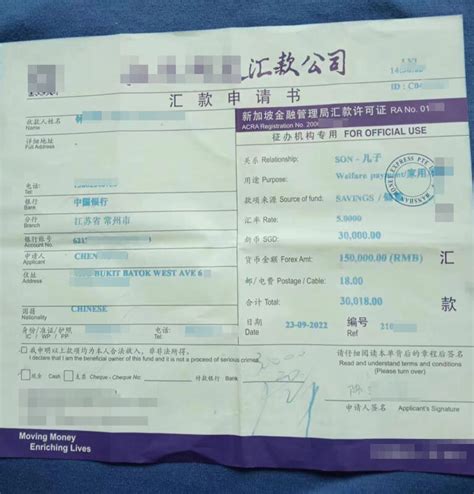 汇款公司
汇款申请书
新加坡金融管理局汇款许可证 RA No. 01
ACRA Registration No. 200
征办机构专用 FOR OFFICIAL USE
收款人姓名
Full Name
详细地址
Full Address
电话:
Tel
银行 中國银行
Bank
分行 江苏省 常州市
Branch
银行账号
Account No.
申请人 CHEN
Applicant
住址 BUKIT BATOK WEST AVE 6
Address
国籍 CHINESE
Nationality
身份/准证/护照 电话
IC / WP / PP Tel
关系 Relationship: SON - 儿子
用途 Purpose: Welfare payment/家用
款项来源 Source of fund: SAVINGS /
汇率 Rate: 5.0000
新币 SGD: 30,000.00
货币金额 Forex Amt: 150,000.00 (RMB)
邮/电费 Postage / Cable: 18.00
合计 Total: 30,018.00
汇
款
日期 23-09-2022 编号
Date Ref No.
我申明以上款项均为本人合法放入,非犯罪所得
I declare that I am the beneficial owner of this fund and it is not a proceed of serious crimes.
现金 Cash 支票 Cheque - Cheque No. 付款银行
请仔细阅读本单背后的章程后签名
Read and understand terms and conditions
(Please turn over)
申请人签名 Applicant's Signature
Moving Money
Enriching Lives